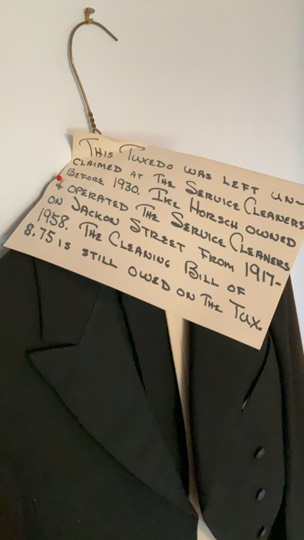 THIS TUXEDO WAS LEFT UN-
CLAIMED AT THE SERVICE CLEANERS
BEFORE 1930. IKE HORSCH OWNED
& OPERATED THE SERVICE CLEANERS
ON JACKON STREET FROM 1917-
1958. THE CLEANING BILL OF
8.75 IS STILL OWED ON THE TUX